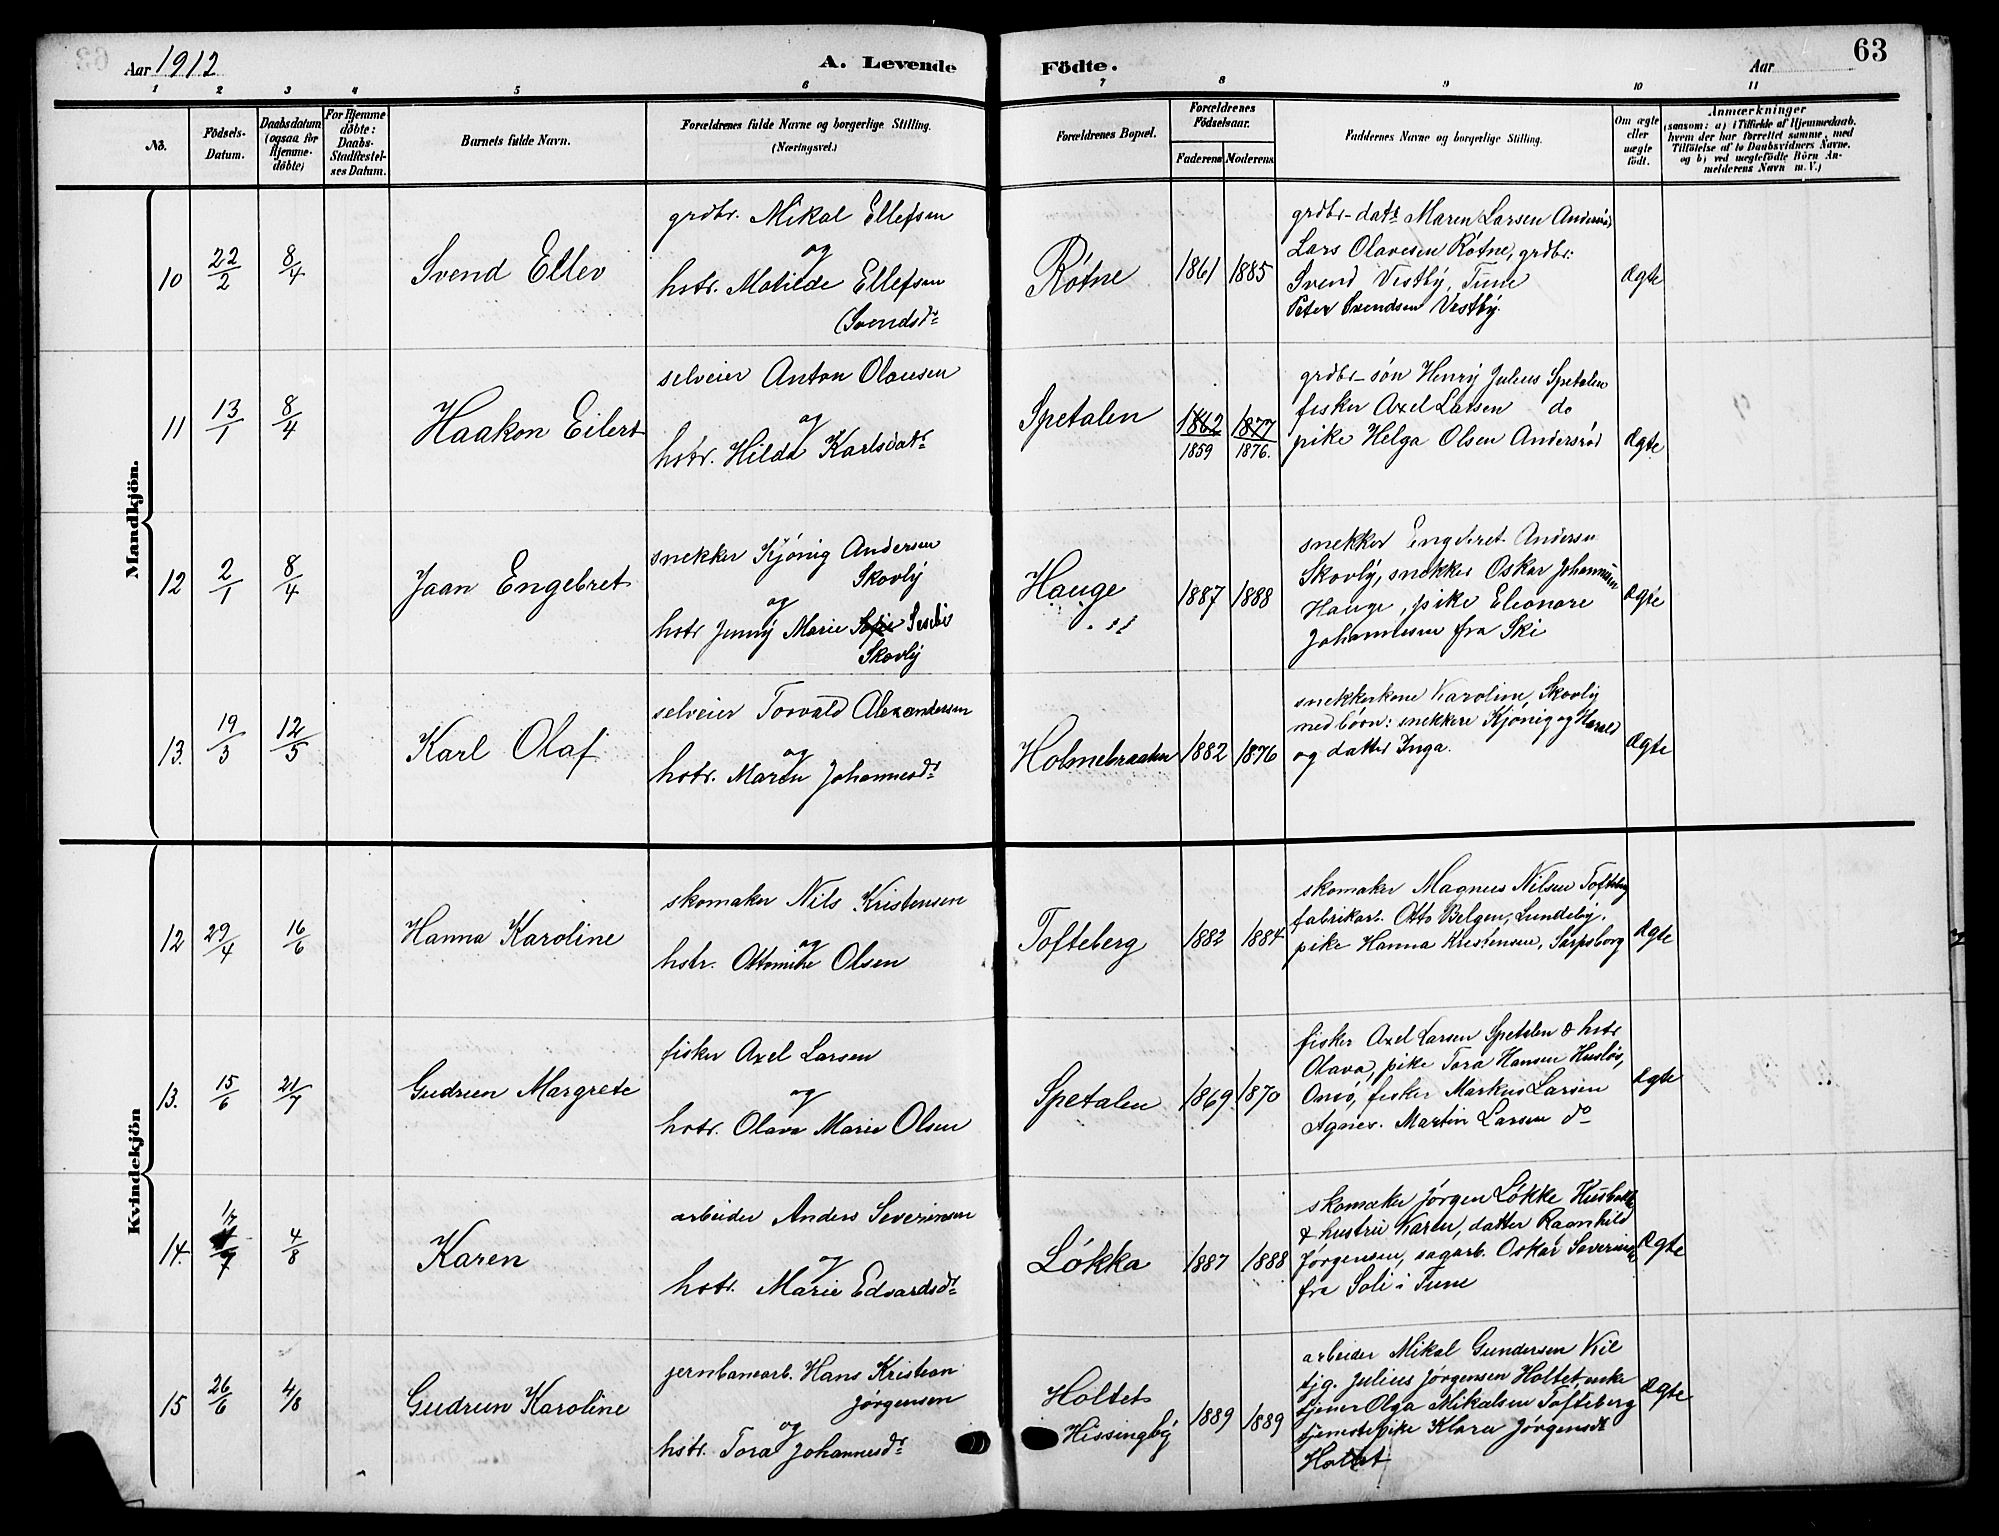 Aar 1912
A. Levende Födte.
Aar
63
1 2 3 4 5 6 7 8 9 10 11
No.
Födsels-Datum.
Daabsdatum (ogsaa for Hjemme-döbte)
For Hjemme döbte: Daabs-Stadfæstel-ses Datum.
Barnets fulde Navn.
Forældrenes fulde Navne og borgerlige Stilling. (Næringsvei.)
Forældrenes Bopæl.
Forældrenes Födselsaar.
Faderens Moderens
Faddernes Navne og borgerlige Stilling.
Om ægte eller uægte födt.
Anmærkninger
(saasom: a) i Tilfælde af Hjemmedaab.
hvem der har forrettet samme, med
Tilföielse af to Daabsvidners Navne.
og b) ved uægtefödte Börn An-
melderens Navn m. V.)
Mandkjön.
10 22/2 8/4 Svend Ellev
grdbr. Mikal Ellefsen
og
hstr. Matilde Ellefsen
(Svendsdr
Rötne 1861 1885
grdbr-datr Maren Larsen
Lars Olavesen Rötne, grdbr:
Svend Vestby, Tune
Peter Svendsen Vestby.
Ægte
11 13/1 8/4 Haakon Eilert
selveier Anton Olausen
og
hstr. Hilda Karlsdatr
Spetalen 1862 1877
1859 1876.
grdbr-sön Henry Julius Spetalen
fisker Axel Larsen do
pike Helga Olsen Andersröd
Ægte
12 2/1 8/4 Jaan Engebret
snekker Kjönig Andersen
Skovly
og
hstr Jenny Marie Sofie
Skovly
Hauge 1887 1888
snekker Engebret Andersen
Skovly, snekker Oskar Johannesen
Hauge, pike Eleonore
Johannesen fra Ski
Ægte
13. 19/3 12/5 Karl Olaf
selveier Torvald Alexandersen
og
hstr. Maren Johannesdr
Holmebraaten 1882 1876
snekkerkone Karoline, Skovly
med börn: snekkere Kjönig og Harald
og datter Inga.
Ægte
Kvindekjön
12 29/4 16/6 Hanna Karoline
skomaker Nils Kristensen
og
hstr. Ottomine Olsen
Tofteberg 1882 1884
skomaker Magnus Nilsen Tofteberg
fabrikarb. Otto Belgen, Lundeby.
pike Hanna Kristensen, Sarpsborg
Ægte
13. 15/6 21/7 Gudrun Margrete
fisker Axel Larsen
og
hstr. Olava Marie Olsen
Spetalen 1869 1870
fisker Axel Larsen Spetalen & hstr
Olava, pike Tora Hansen Huslös,
Onsö, fisker Markus Larsen
Agnes. Martin Larsen do
Ægte
14. 17/7 4/8 Karen
arbeider Anders Severinsen
og
hstr. Marie Edvardsdr
Lökka 1887 1888
skomaker Jörgen Lökke
& hustru Karen, datter Ragnhild
Jörgensen, sagarb. Oskar Severinsen
fra Soli i Tune
Ægte
15 26/6 4/8 Gudrun Karoline
jernbanearb. Hans Kristian
Jörgensen
og
hstr. Tora Johannesdr
Holtet
Hissingby 1889 1889
arbeider Mikal Gundersen Kil
tjg. Julius Jörgensen Holtet enke
tjener Olga Mikalsen Tofteberg
tjenestepike Klara Jörgensdr
Holtet
Ægte